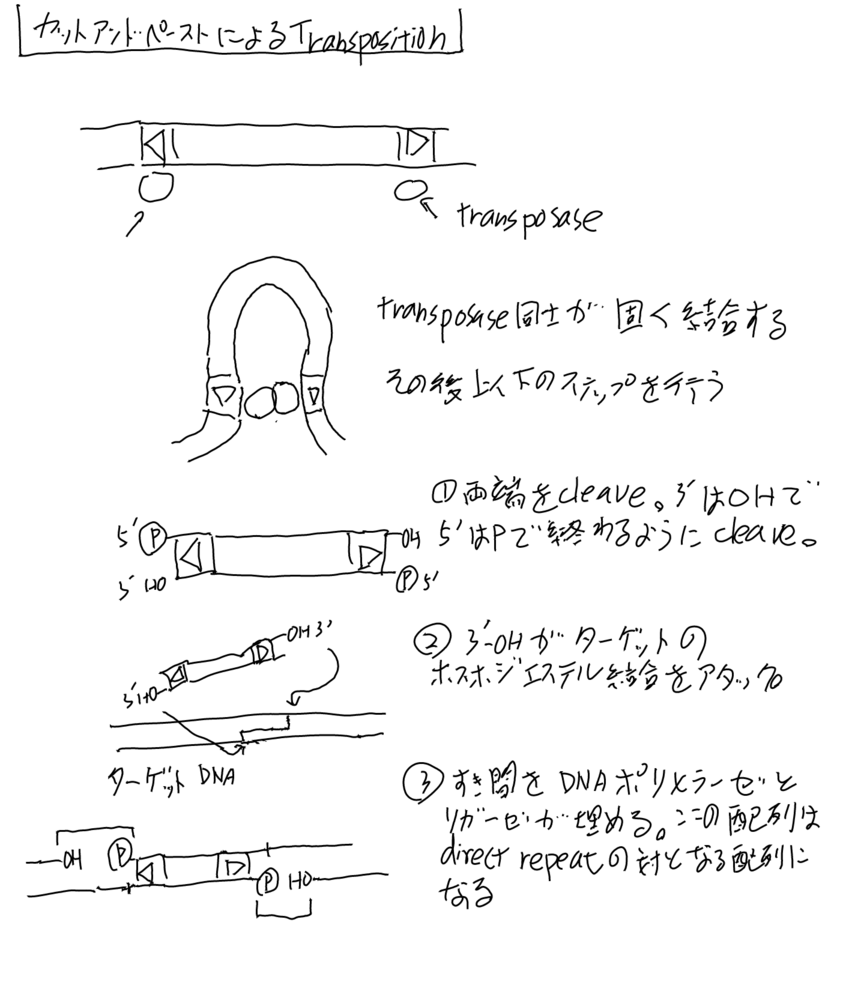 カットアンドペーストによるTransposition
transposase
transposase同士が固く結合する
その後以下のステップを行う
①両端をcleave。3'はOHで
5'はPで終わるようにcleave。
5' P
OH
3' HO
P 5'
②3'-OHがターゲットの
ホスホジエステル結合をアタック
OH 3'
3' HO
ターゲット DNA
③すき間をDNAポリメラーゼと
リガーゼが埋める。この配列は
direct repeatの対となる配列に
なる
OH P
P HO